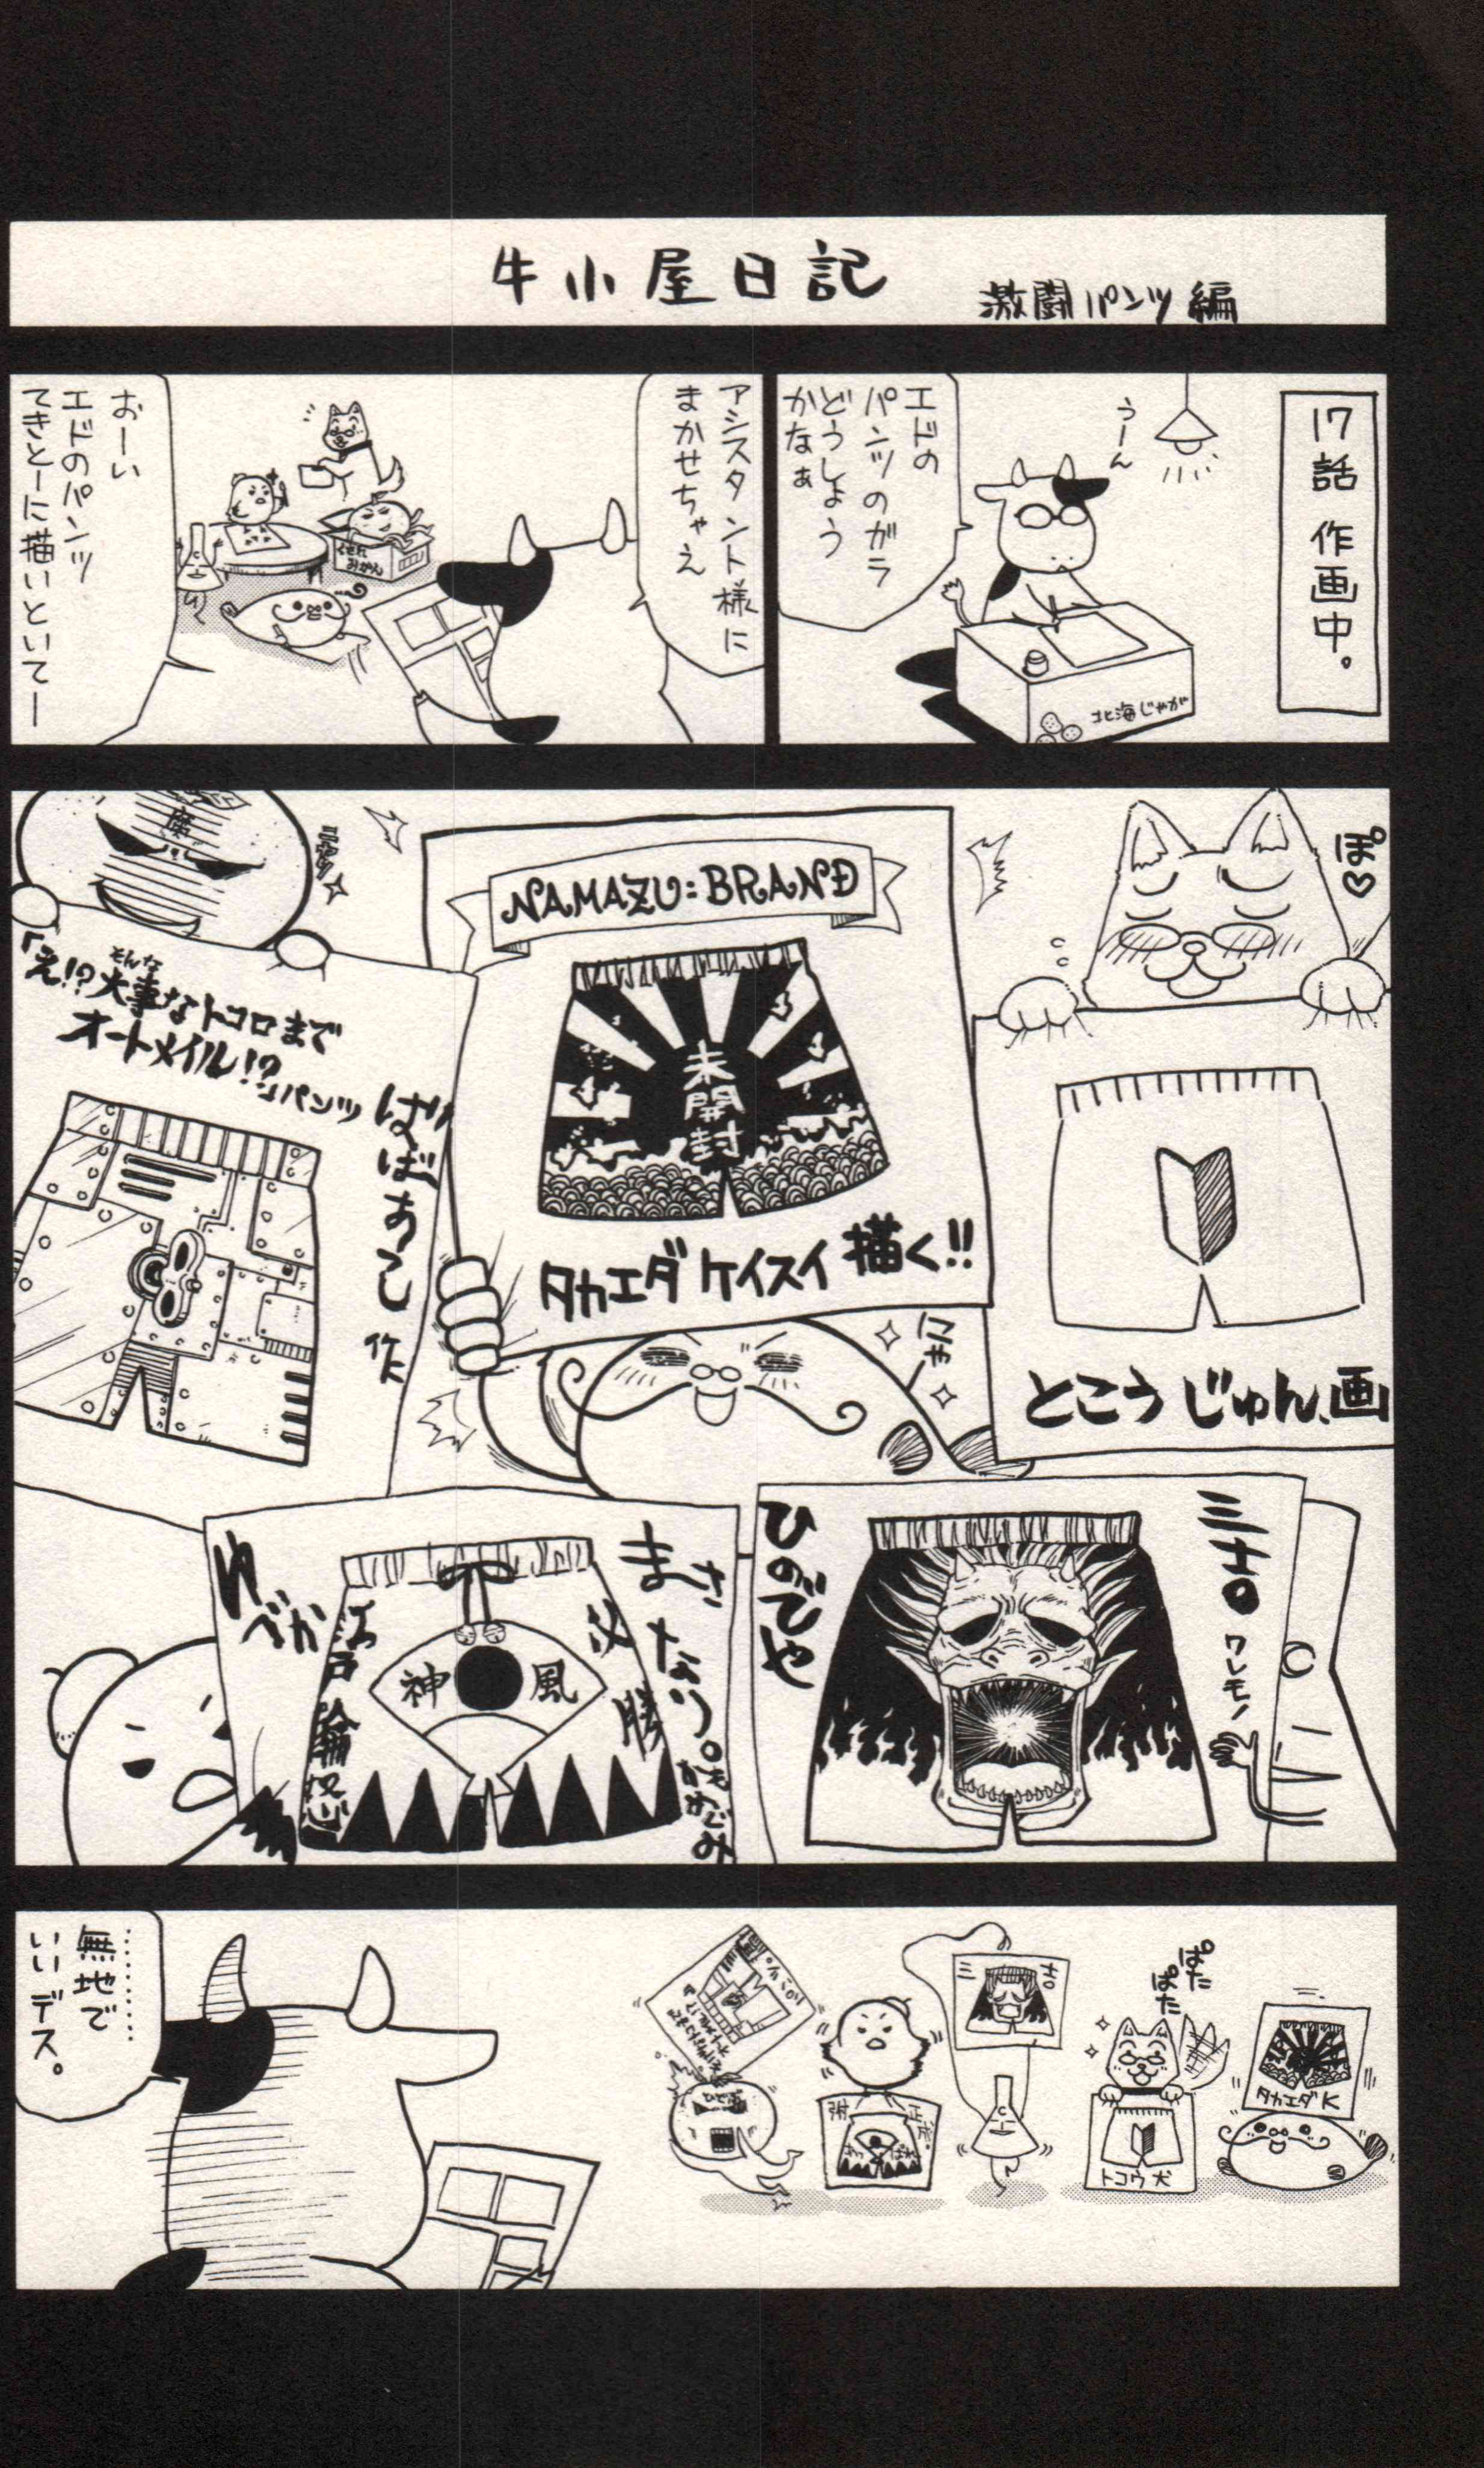 牛小屋日記
激闘パンツ編
17話 作画中。
うーん
エドの
パンツのガラ
どうしよう
かなぁ
北海じゃが
アシスタント様に
まかせちゃえ
みかん
おーい
エドのパンツ
てきとーに描いといてー
ぽ♡
とこう じゅん、画
NAMAZU=BRAND
未開封
タカエダ ケイスイ 描く!!
にゃー
魔
「え!? 大事なトコロまで
そんな
オートメイル!?」パンツ
ばばあこ 作
三十。
ワレモノ
ひのでや
まさ
なり。
必勝
神 風
江戸
ゆべか
ぱた
ぱた
タカエダ K
トコウ 犬
三十。
………
無地で
いいデス。